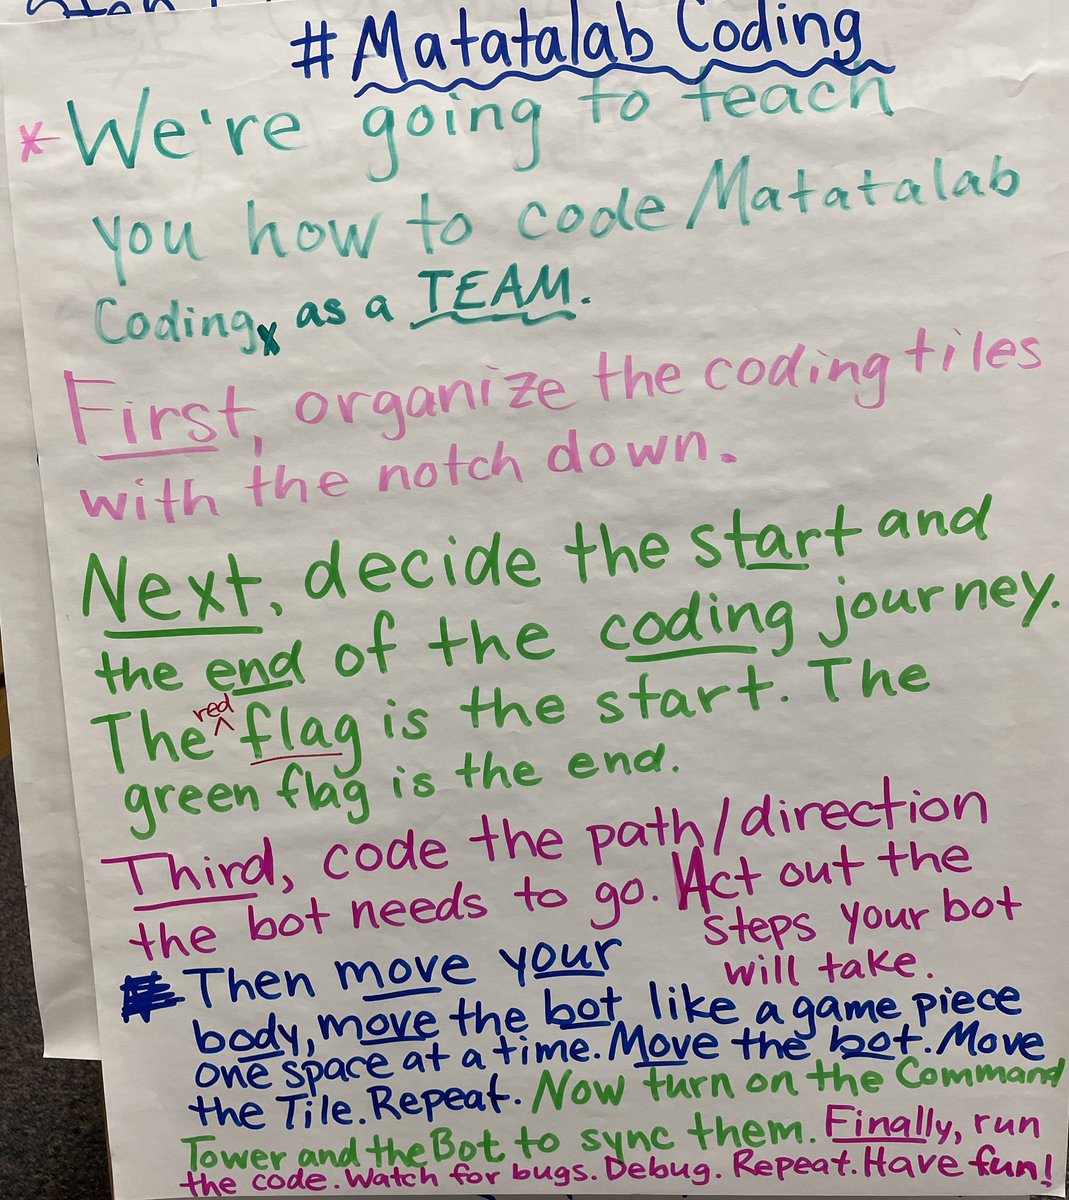 # Matatalab Coding
* We're going to teach
you how to code Matatalab
Coding as a TEAM.
First, organize the coding tiles
with the notch down.
Next, decide the start and
the end of the coding journey.
The red flag is the start. The
green flag is the end.
Third, code the path/direction
the bot needs to go. Act out the
steps your bot
will take.
Then move your
body, move the bot like a game piece
one space at a time. Move the bot. Move
the Tile. Repeat. Now turn on the Command
Tower and the Bot to sync them. Finally, run
the code. Watch for bugs. Debug. Repeat. Have fun!